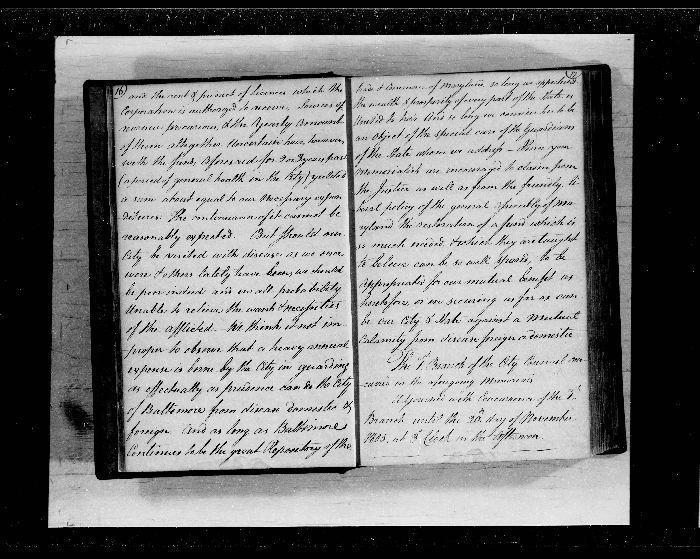 16
and the rent & product of licences which the
Corporation is authorized to receive. Sources of
revenue precarious, & the Yearly amount
of them altogether Uncertain have, however,
with the fund, aforesaid for 2 or 3 years past
(a period of general health in the City) yielded
a sum about equal to our necessary expen
ditures. The continuance of it cannot be
reasonably expected. But should our
City be visited with disease as we once
were & others lately have been, we should
be poor indeed and in all probability
Unable to relieve the wants & necessities
of the afflicted. We think it not im
proper to observe that a heavy annual
expense is born by the City in guarding
as effectually as prudence can do the City
of Baltimore from disease domestic &
foreign. And as long as Baltimore
Continues to be the great Repository of the
trade & commerce of Maryland, so long as
the wealth & prosperity of every part of the State is
to hers And so long we conceive her to be
an object of the special care of the Guardians
of the State whom we address — Then your
memorialists are encouraged to claim from
the Justice as well as from the friendly, li
beral policy of the general assembly of Ma
ryland the restoration of a fund which is
so much needed & which they are taught
to believe can be so well spared, to be
appropriated for our mutual benefit as
heretofore, or in securing as far as can
be our City & State against a mutual
Calamity from disease foreign or domestic
The 1st Branch of the City Council con
curred in the aforegoing Memorial
Adjourned with Concurrence of the 1st
Branch until the 22d day of November
1805, at 3 Clock in the afternoon.